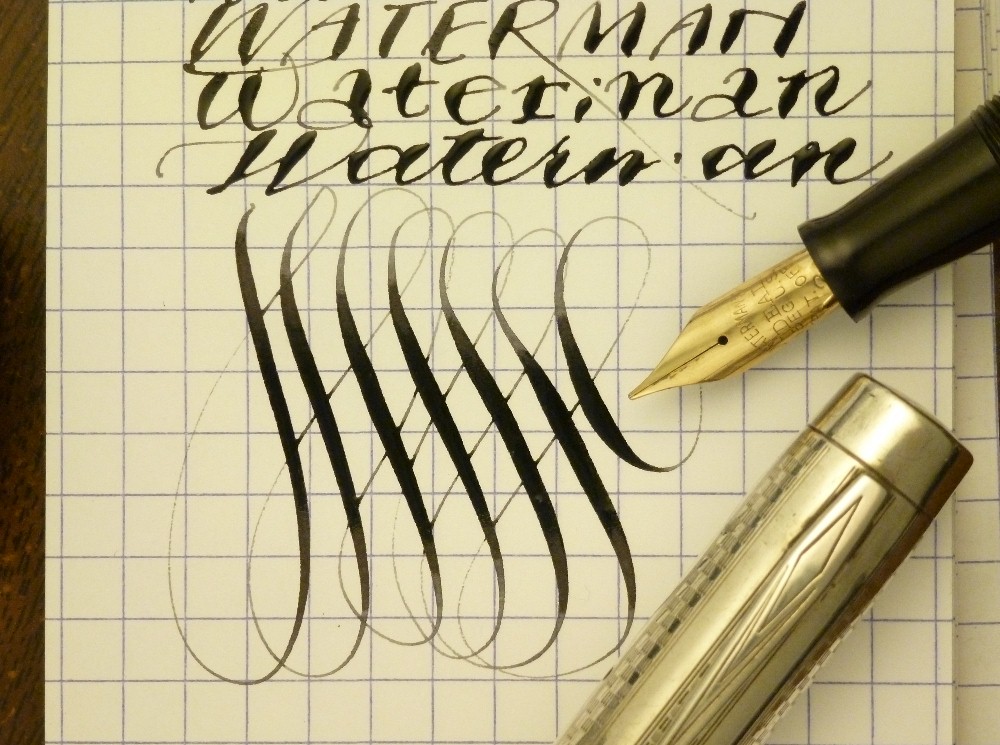 WATERMAN
Waterman
Waterman
WATERMAN
IDEAL